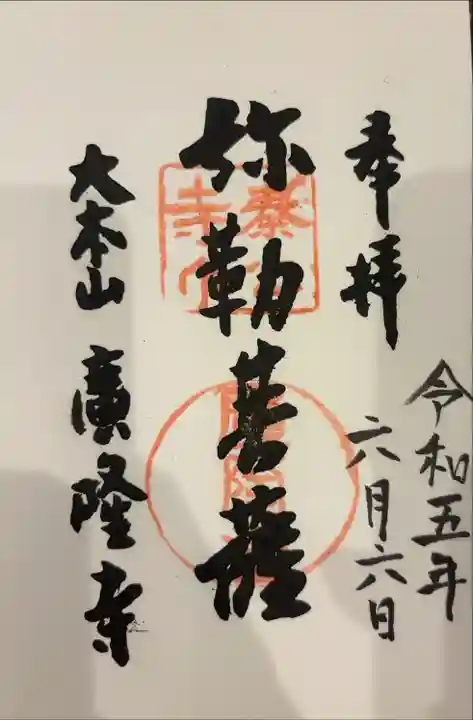 奉拝
令和五年
六月六日
弥勒菩薩
大本山 廣隆寺